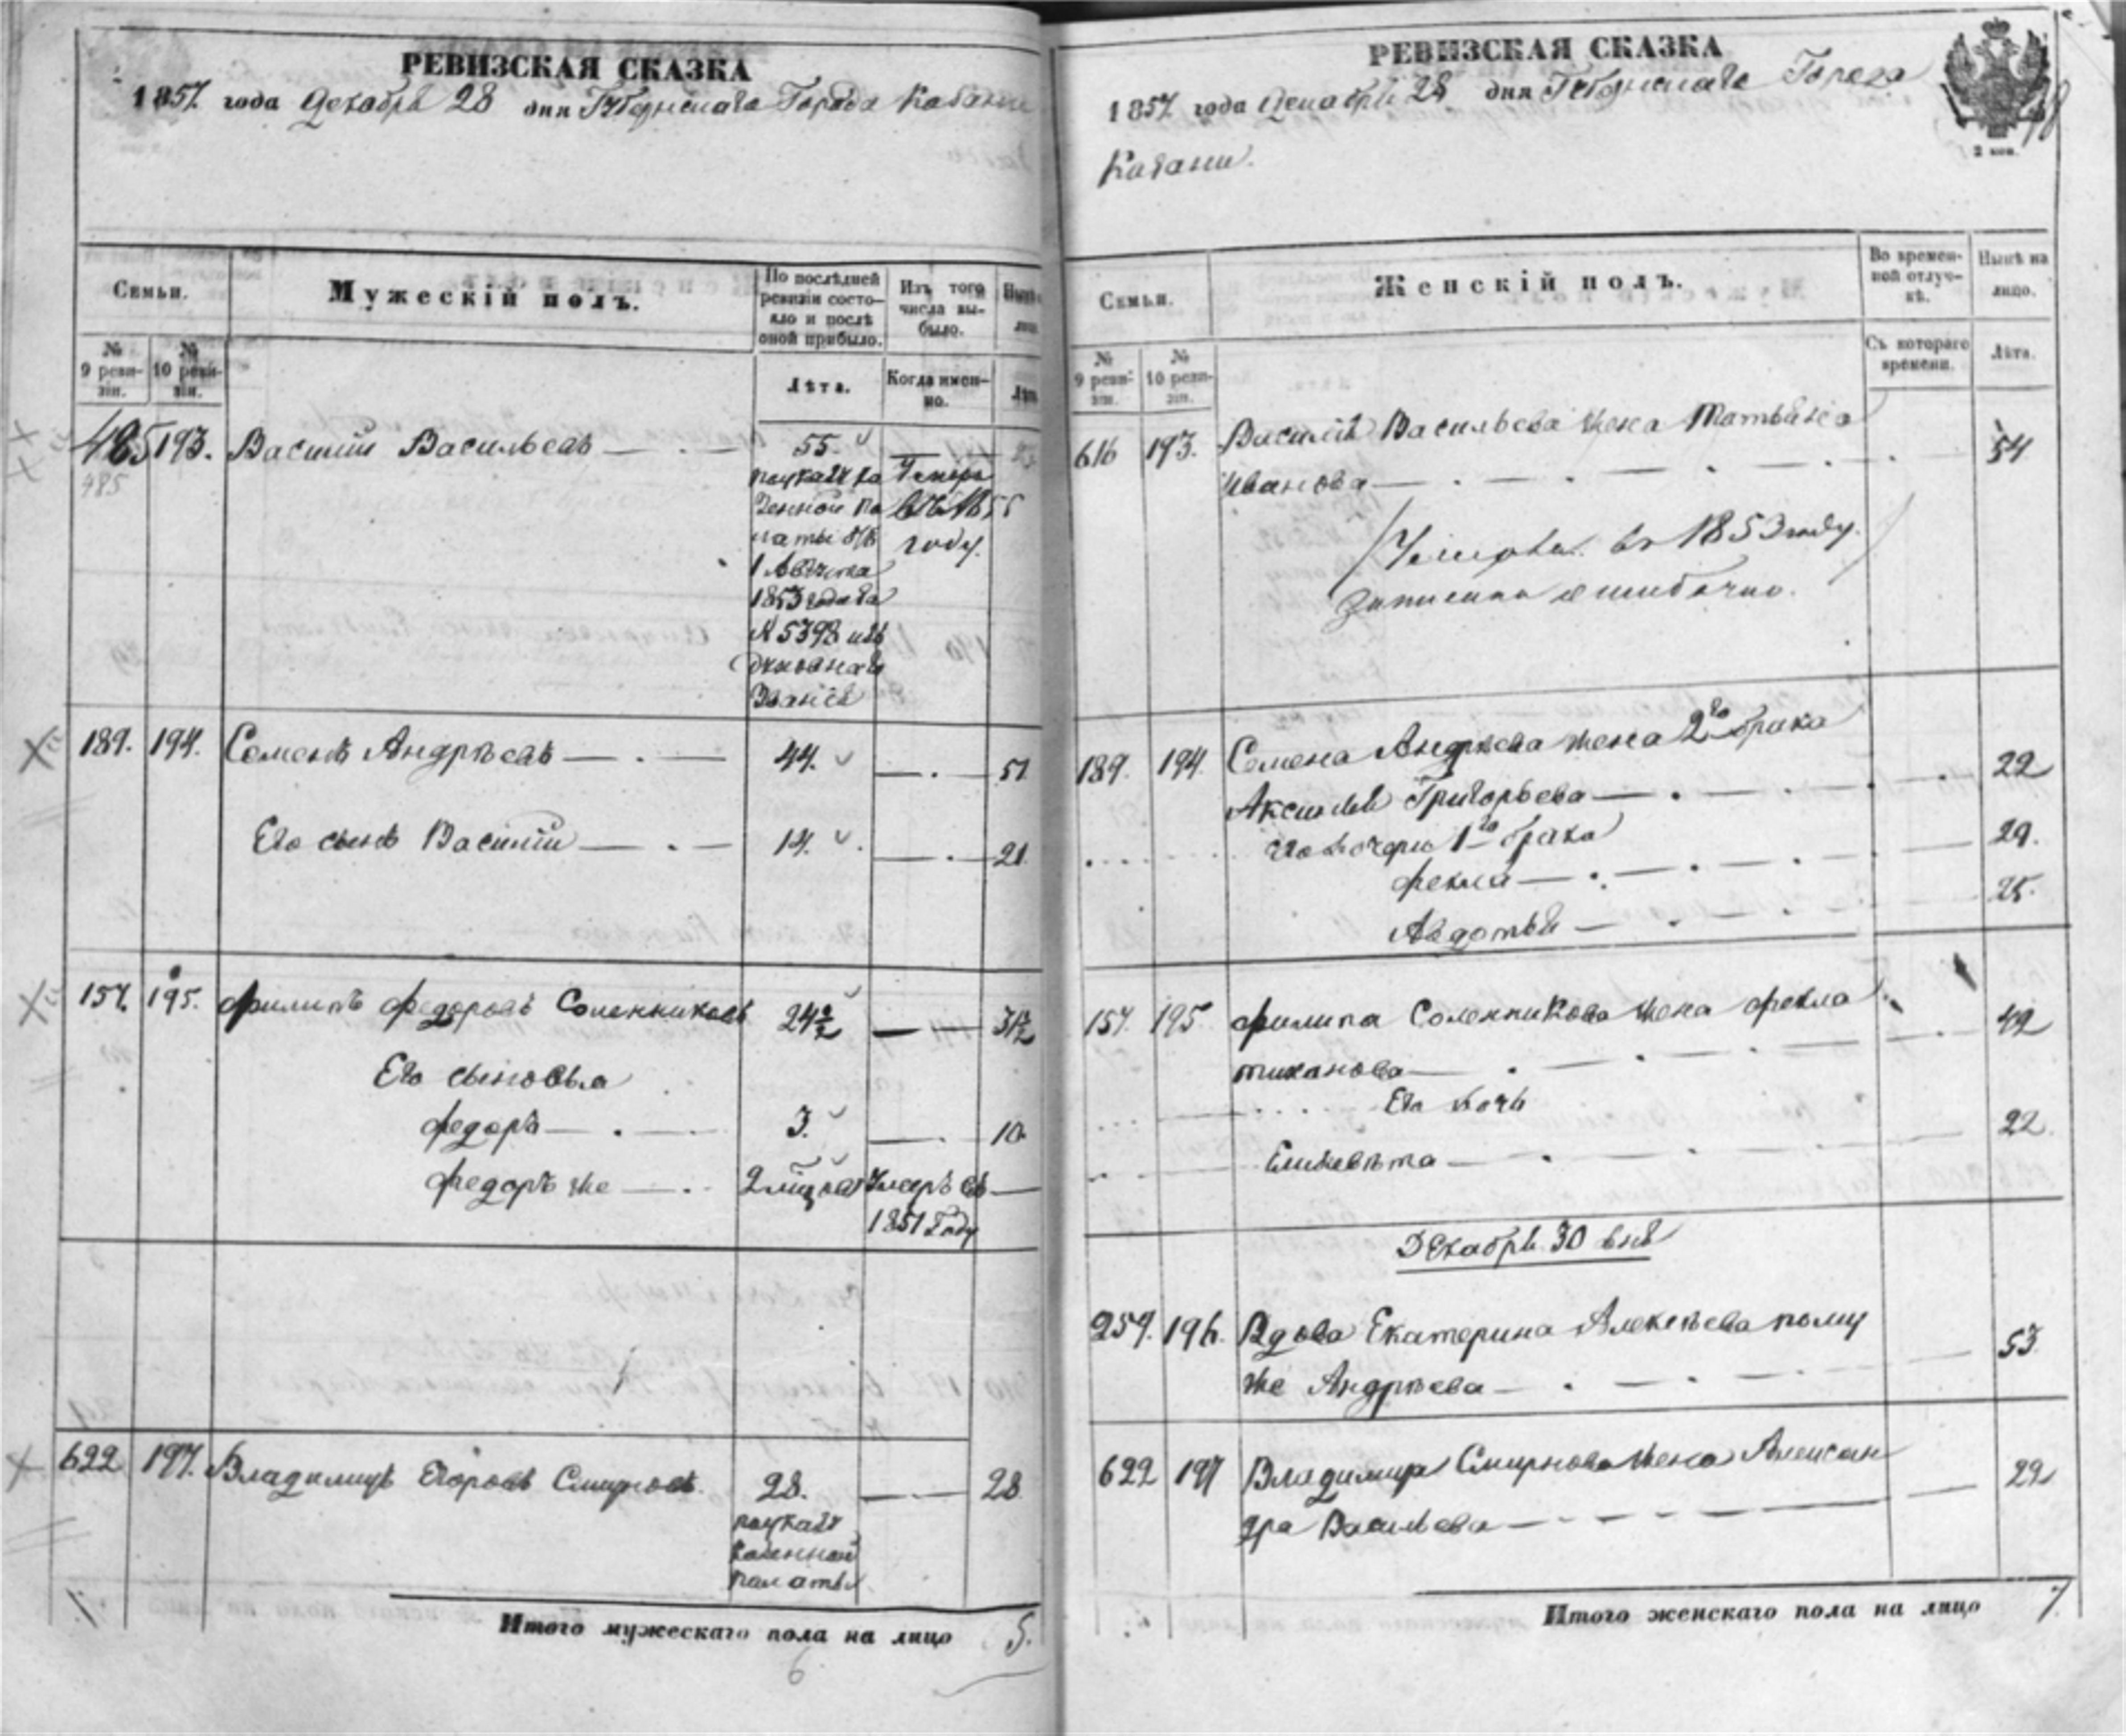 РЕВИЗСКАЯ СКАЗКА
1857 года Декабря 28 дня Губернскаго Города Казани
Семьи.
Мужескій полъ.
По послѣдней ревизіи состояло и послѣ оной прибыло.
Изъ того числа выбыло.
№ 9 ревизіи.
№ 10 ревизіи.
Лѣта.
Когда именно.
Лѣта
485 193. Василій Васильевъ — . — 55
485
по указу Казенной палаты отъ 1 Августа 1853 года за № 5398 изъ духовнаго званія
Умеръ въ 1855 году.
189. 194. Семенъ Андрѣевъ — . — 44. — . — 51
Его сынъ Василій — . — 14. — . — 21
157. 195. Филипъ Федоровъ Соленниковъ 24½ — — 31½
Его сыновья
Федоръ — . — 3. — . 10.
Федоръ же — . . 2 мѣсяца Умеръ въ 1851 Году —
622 197. Владимиръ Егоровъ Смирновъ. 28. — — 28
по указу Казенной палаты
Итого мужескаго пола на лицо 5.
6
РЕВИЗСКАЯ СКАЗКА
1857 года Декабря 28 дня Губернскаго Города
Казани.
2 коп.
Семьи.
Женскій полъ.
Во временной отлучкѣ.
Нынѣ на лицо.
№ 9 ревизіи.
№ 10 ревизіи.
Съ котораго времени.
Лѣта.
616 193. Василія Васильева жена Татьяна
Иванова — . — . — . — . 54
Умерла въ 1853 году.
записана ошибочно.
189. 194. Семена Андрѣева жена 2го брака
Аксинья Григорьева — . — . — . 22
Его дочери 1го брака
Фекла — . — . — . 29.
Авдотья — . — . 25.
157. 195 Филипа Соленникова жена Фекла
тиханова — . — . — . 42
Его дочь
Елизавѣта — . — . — 22.
Декабря 30 дня
259. 196. Вдова Екатерина Алексѣева по му
же Андрѣева — . — . — . 53
622 197 Владимира Смирнова жена Алексан
дра Васильева — — — — 22
Итого женскаго пола на лицо 7.